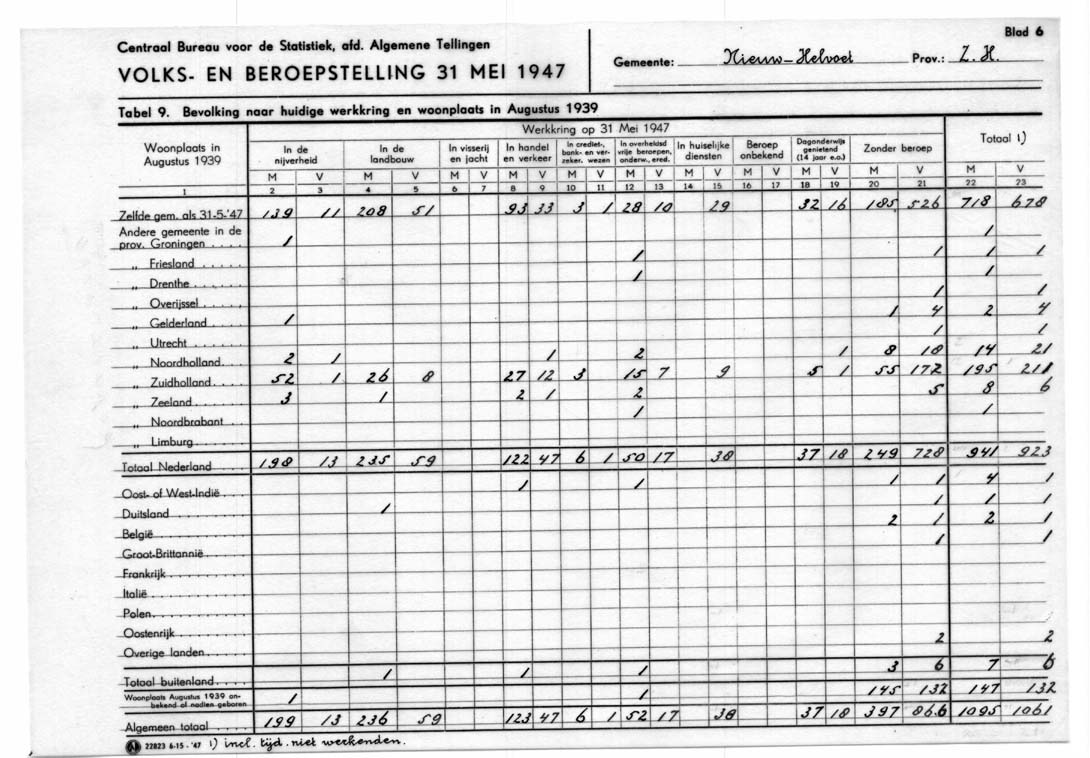 Blad 6
Centraal Bureau voor de Statistiek, afd. Algemene Tellingen
VOLKS- EN BEROEPSTELLING 31 MEI 1947
Gemeente: Nieuw-Helvoet Prov.: Z.H.
Tabel 9. Bevolking naar huidige werkkring en woonplaats in Augustus 1939
Woonplaats in Augustus 1939
Werkkring op 31 Mei 1947
Totaal 1)
In de nijverheid
In de landbouw
In visserij en jacht
In handel en verkeer
In crediet-, bank- en verzeker. wezen
In overheidsd vrije beroepen, onderw., ered.
In huiselijke diensten
Beroep onbekend
Dagonderwijs genietend (14 jaar e.o.)
Zonder beroep
M V M V M V M V M V M V M V M V M V M V M V
1 2 3 4 5 6 7 8 9 10 11 12 13 14 15 16 17 18 19 20 21 22 23
Zelfde gem. als 31-5-'47 139 11 208 51 93 33 3 1 28 10 29 32 16 185 526 718 678
Andere gemeente in de
prov. Groningen 1 1
„ Friesland 1 1 1 1
„ Drenthe 1 1
„ Overijssel 1 1
„ Gelderland 1 1 4 2 4
„ Utrecht 1 1
„ Noordholland 2 1 1 2 1 8 18 14 21
„ Zuidholland 52 1 26 8 27 12 3 15 7 9 5 1 55 172 195 211
„ Zeeland 3 1 2 1 2 5 8 6
„ Noordbrabant 1 1
„ Limburg
Totaal Nederland 198 13 235 59 122 47 6 1 50 17 38 37 18 249 728 941 923
Oost- of West-Indië 1 1 1 1 4 1
Duitsland 1 1 1 1
België 2 1 2 1
Groot-Brittannië 1 1
Frankrijk
Italië
Polen
Oostenrijk
Overige landen 2 2
Totaal buitenland 1 1 1 3 6 7 6
Woonplaats Augustus 1939 onbekend of nadien geboren 1 1 145 132 147 132
Algemeen totaal 199 13 236 59 123 47 6 1 52 17 38 37 18 397 866 1095 1061
22823 6-15 - '47 1) incl. tijd. niet werkenden.